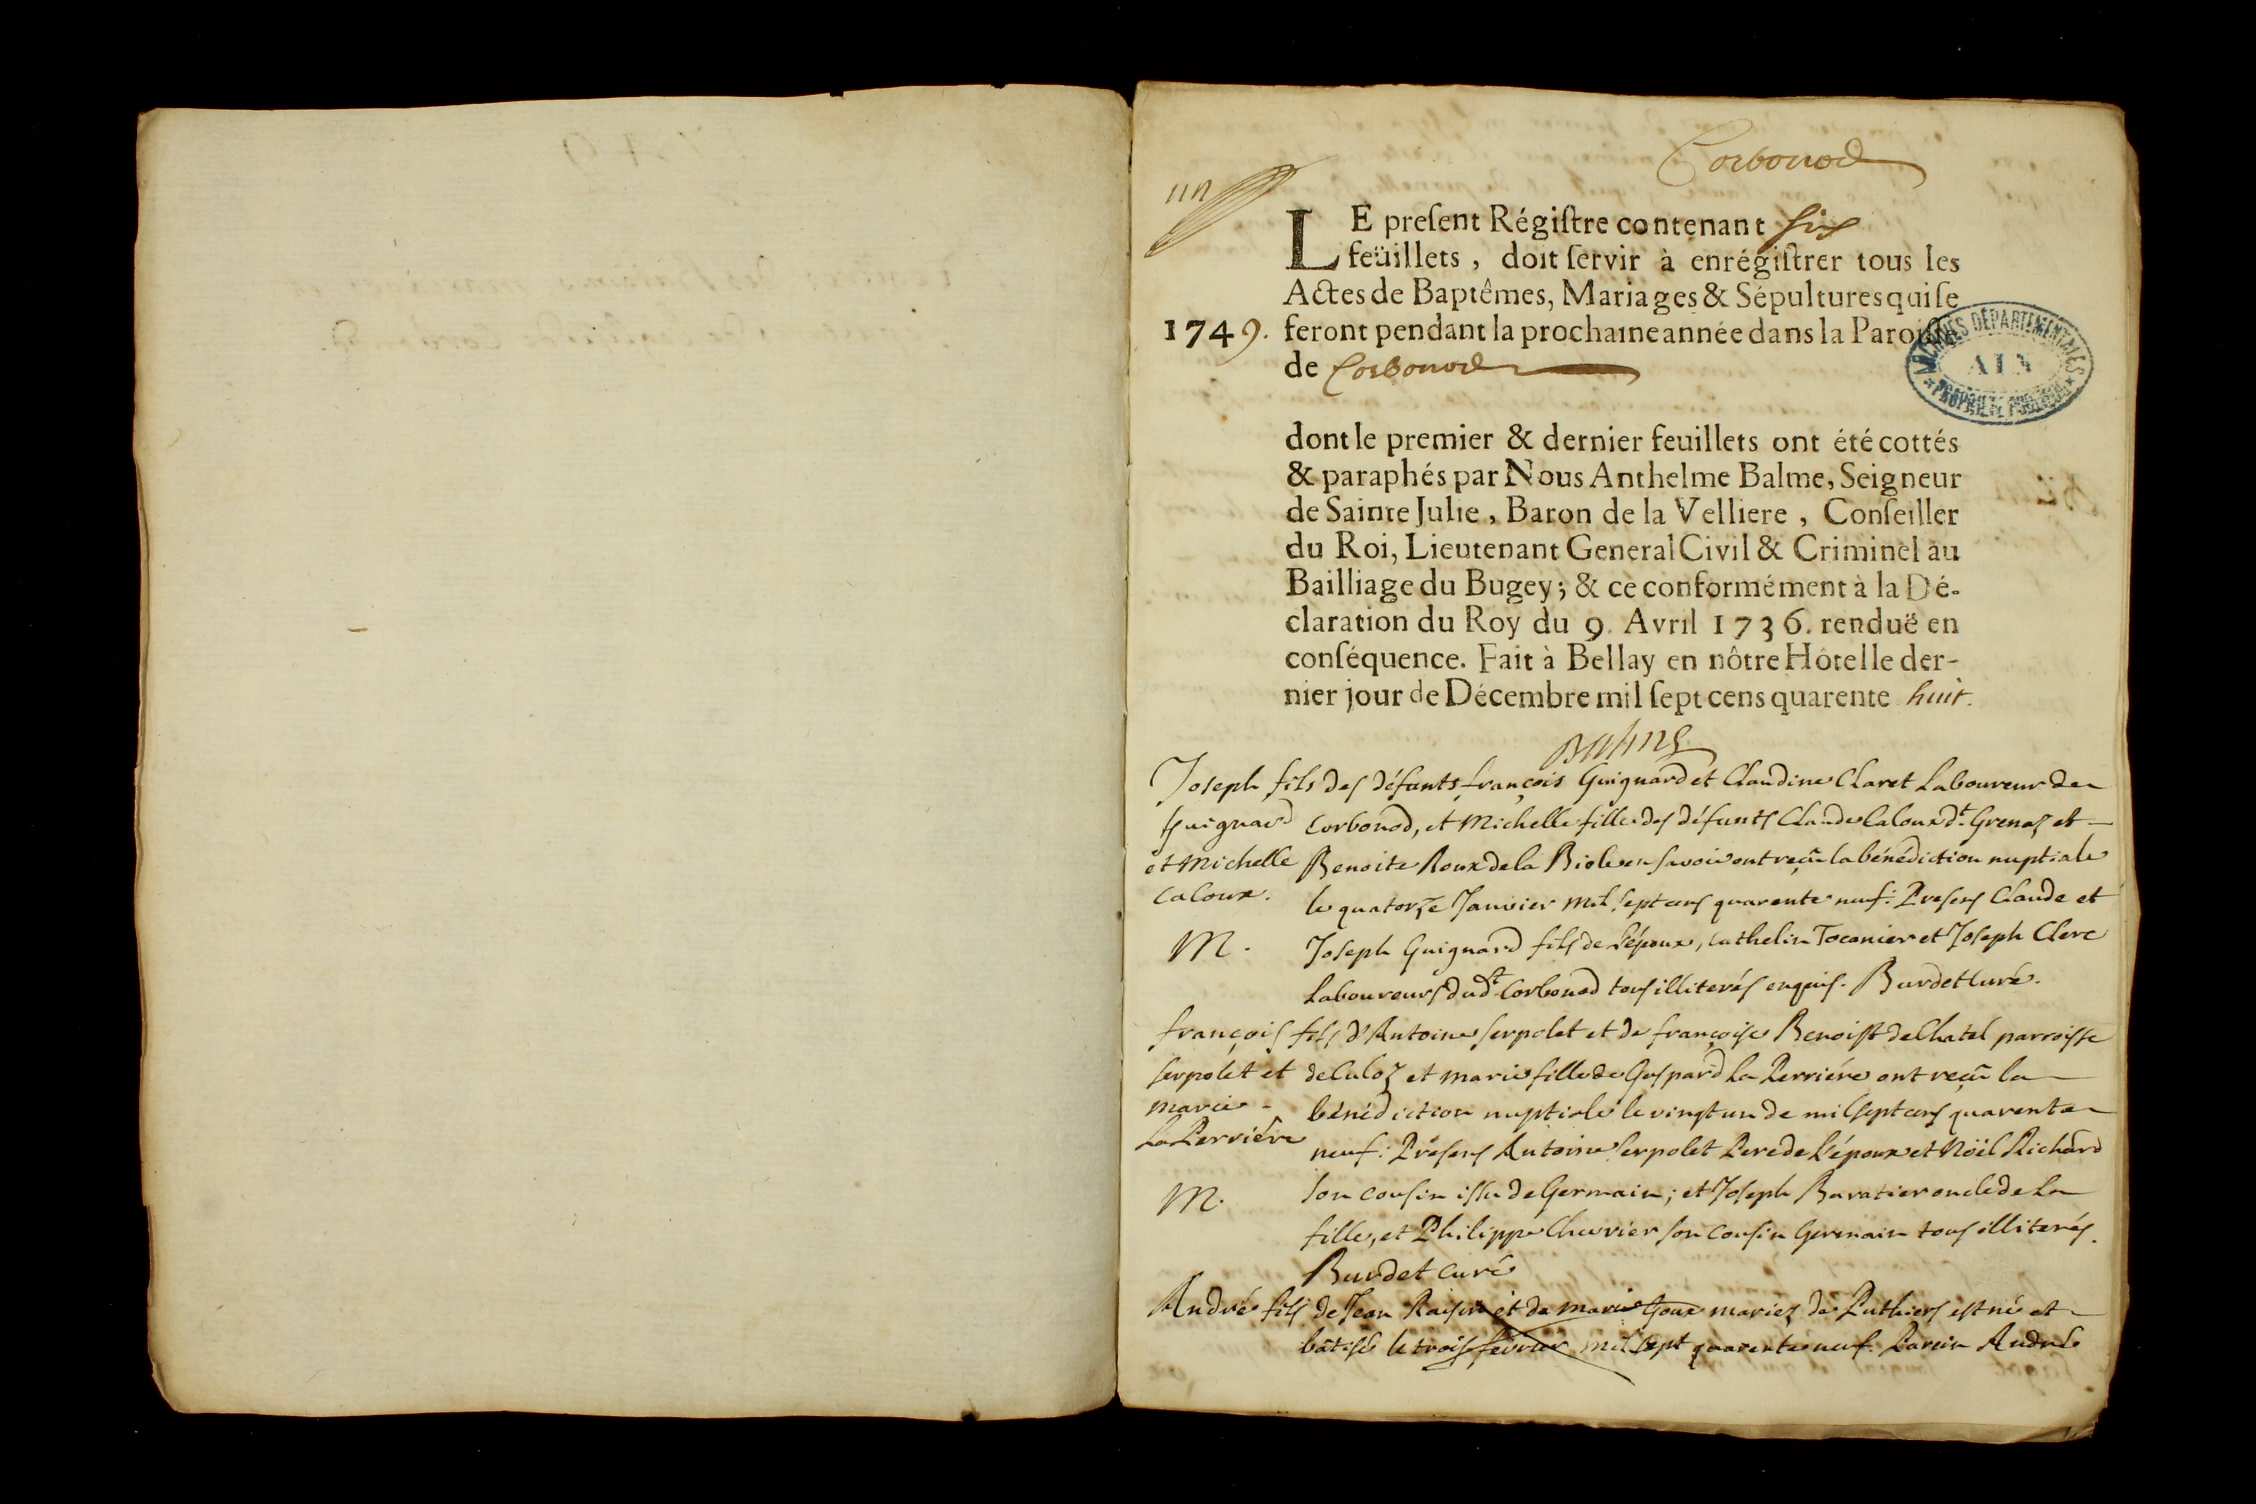 Corbonod
un
LE present Régistre contenant six
feüillets, doit servir à enrégistrer tous les
Actes de Baptêmes, Mariages & Sépultures qui se
1749. feront pendant la prochaine année dans la Paroisse
de Corbonod
ARCHIVES DÉPARTEMENTALES
AIN
* PROPRIÉTÉ PUBLIQUE *
dont le premier & dernier feuillets ont été cottés
& paraphés par Nous Anthelme Balme, Seigneur
de Sainte Julie, Baron de la Velliere, Conseiller
du Roi, Lieutenant General Civil & Criminel au
Bailliage du Bugey; & ce conformément à la Dé-
claration du Roy du 9. Avril 1736. renduë en
conséquence. Fait à Bellay en nôtre Hôtel le der-
nier jour de Décembre mil sept cens quarente huit.
Balme
Joseph fils des défunts françois Guignard et Claudine Claret Laboureur de
Guignard Corbonod, et Michelle fille des défunts Claude Caloux dt. Grenaz et
et Michelle Benoite Roux de la Biole en Savoie ont reçû la bénédiction nuptiale
Caloux. le quatorze Janvier mil sept cens quarente neuf. Presens Claude et
M. Joseph Guignard fils de l'époux, Cathelin Tocanier et Joseph Clerc
Laboureurs dudt. Corbonod tous illiterés enquis. Burdet Curé.
françois fils d'Antoine Serpolet et de françoise Benoist de Chatel parroisse
Serpolet et de Culoz et marie fille de Gaspard La Perriére ont reçû la
marie bénédiction nuptiale le vingt un de mil sept cens quarente
La Perriére neuf. Présens Antoine Serpolet Pere de l'époux et Noël Richard
M. son cousin issu de Germain; et Joseph Baratier oncle de la
fille, et Philippe Chevrier son cousin Germain tous illiterés.
Burdet Curé
André fils de Jean Raisin et de marie Goux mariez de Puthiers est né et
bâtisé le trois fevrier mil sept quarente neuf. Parein André